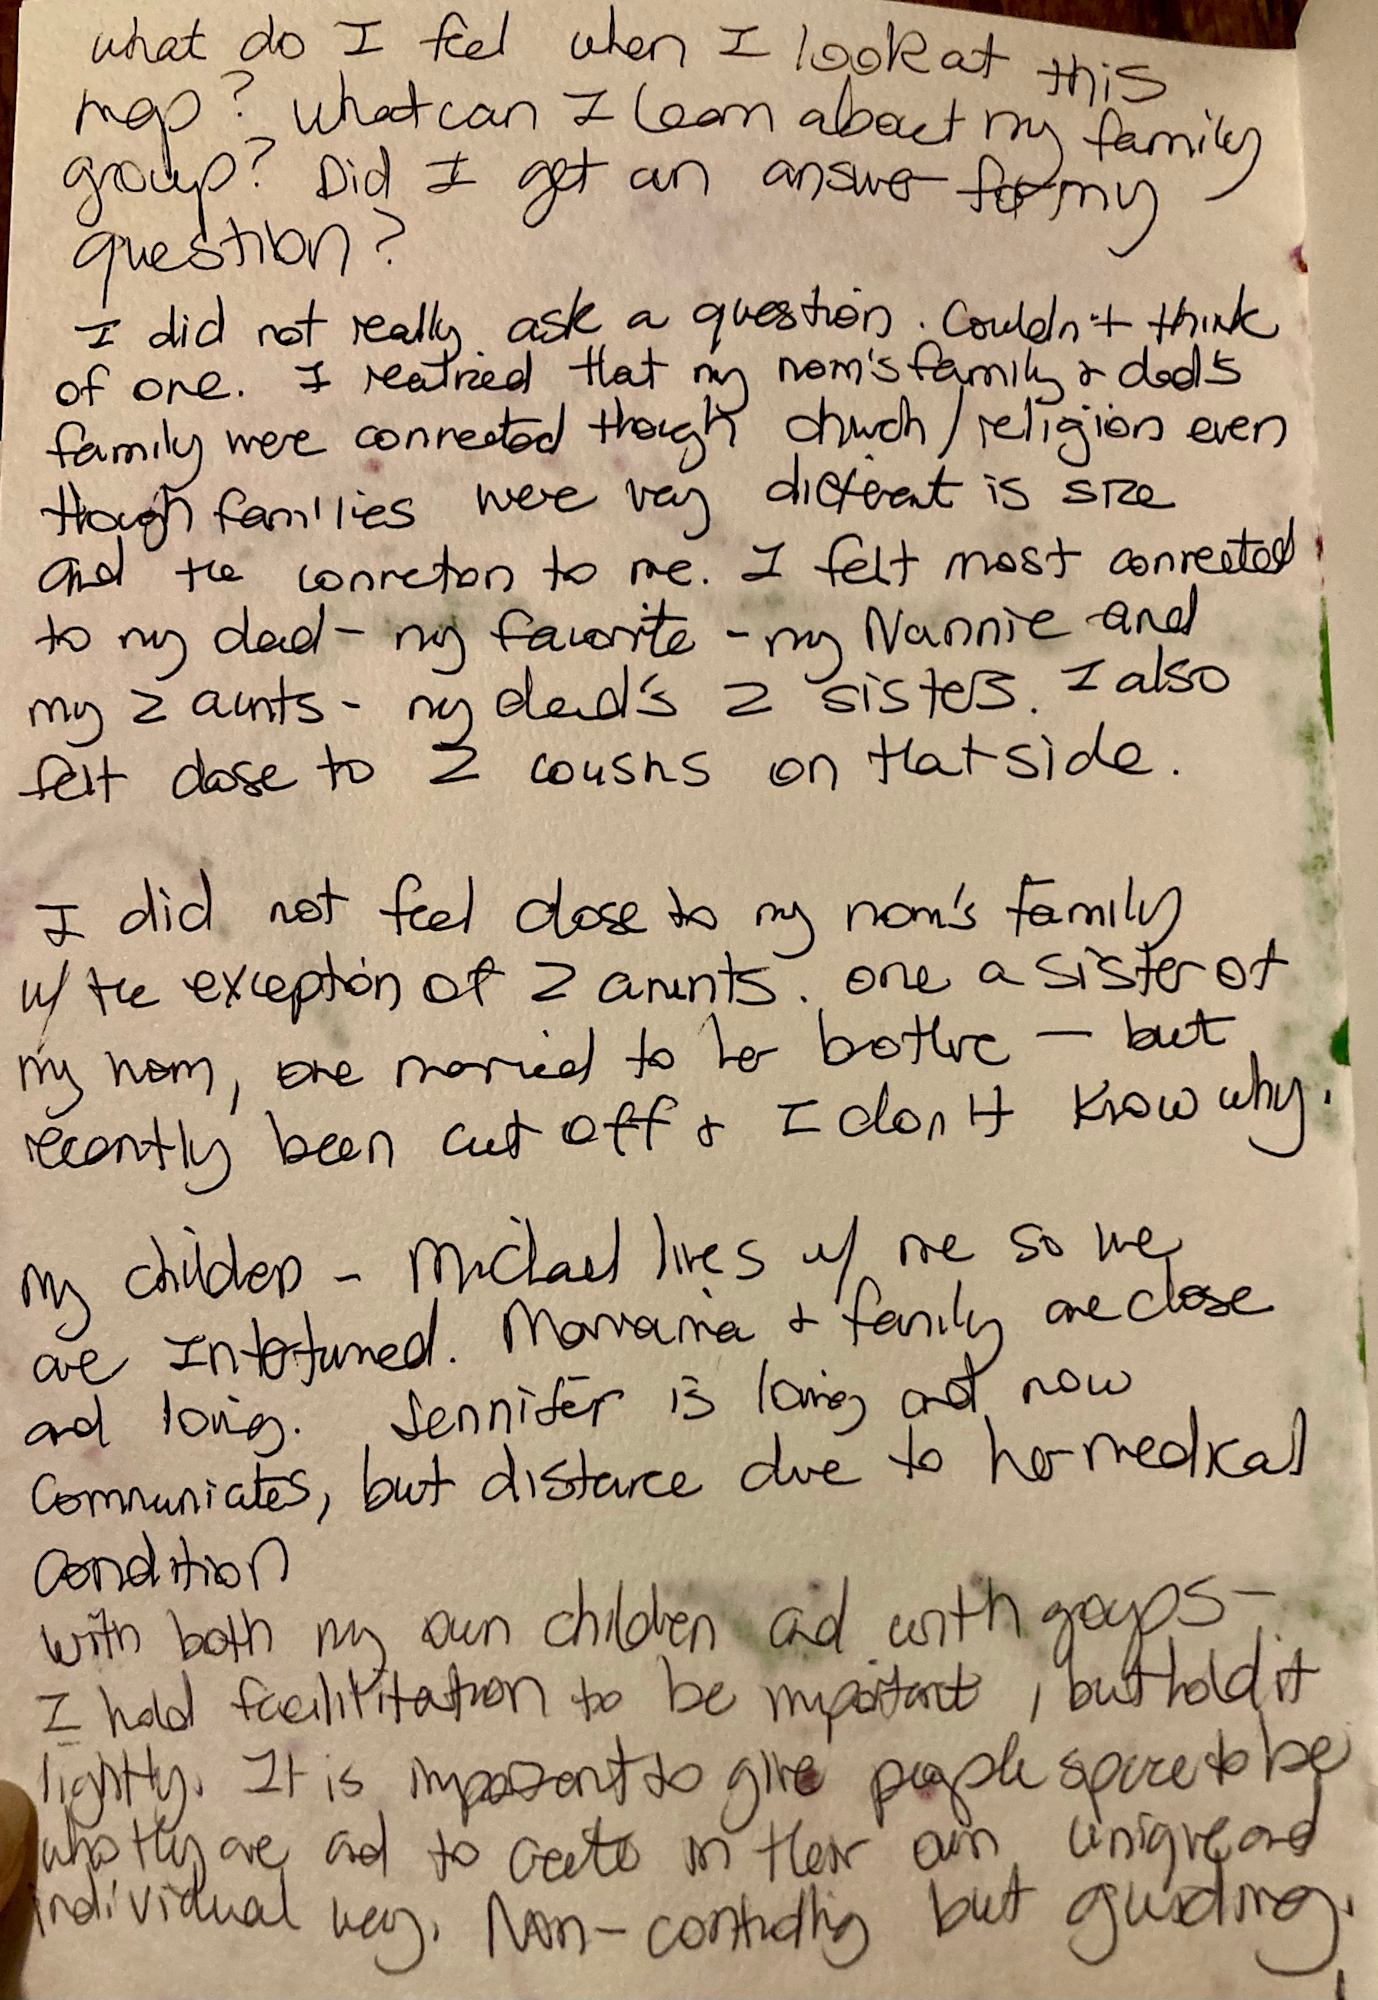 what do I feel when I look at this
map? What can I learn about my family
group? Did I get an answer for my
question?
I did not really ask a question. Couldn't think
of one. I realized that my mom's family & dad's
family were connected though church/religion even
though families were very different is size
and the connection to me. I felt most connected
to my dad - my favorite - my Nannie and
my 2 aunts - my dad's 2 sisters. I also
felt close to 2 cousins on that side.
I did not feel close to my mom's family
w/ the exception of 2 aunts. one a sister of
my mom, one married to her brother — but
recently been cut off & I don't know why.
My children - Michael lives w/ me so we
are Intertwined. & family are close
and loving. Jennifer is loving and now
communicates, but distance due to her medical
condition
with both my own children and with groups -
I hold facilitation to be important, but hold it
lightly. It is important to give people space to be
who they are and to create in their own unique and
individual way. Non-controlling but guiding.